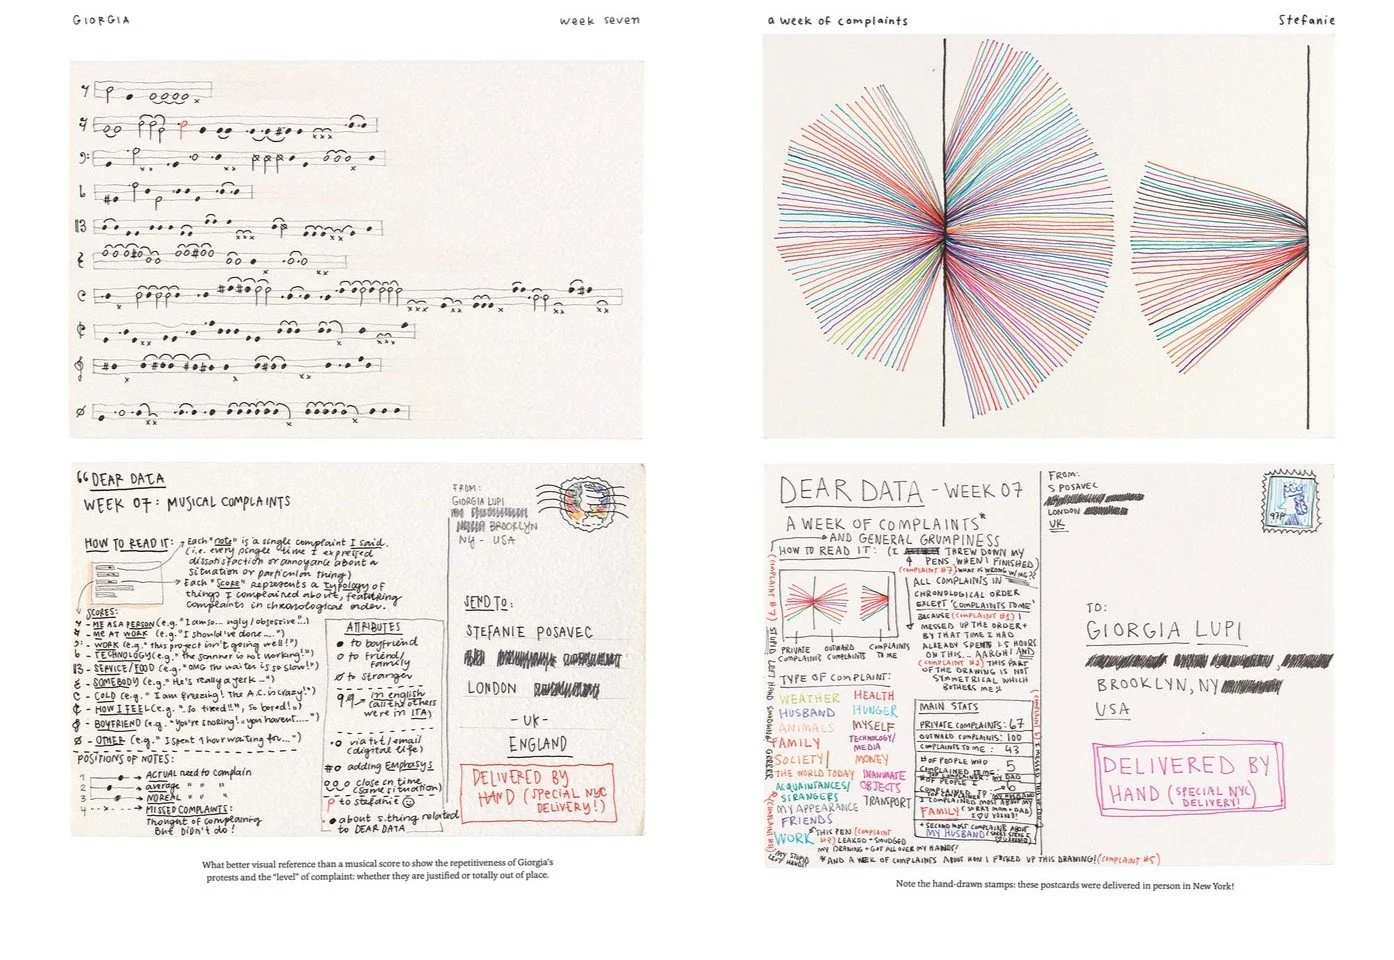 GIORGIA
week seven
"DEAR DATA
WEEK 07: MUSICAL COMPLAINTS
HOW TO READ IT:
Each "note" is a single complaint I said.
(i.e. every single time I expressed
dissatisfaction or annoyance about a
situation or particular thing)
Each "Score" represents a typology of
things I complained about, featuring
complaints in chronological order.
SCORES:
ME AS A PERSON (e.g. "I am so... ugly/obsessive...")
ME AT WORK (e.g. "I should've done....")
WORK (e.g. "this project isn't going well!")
TECHNOLOGY (e.g. "the scanner is not working!")
SERVICE/FOOD (e.g. "OMG the waiter is so slow!")
SOMEBODY (e.g. "He's really a jerk...")
COLD (e.g. "I am freezing! The A.C. is crazy!")
HOW I FEEL (e.g. ".. so tired!!", so bored!")
BOYFRIEND (e.g. "You're snoring!", you haven't.....")
OTHER (e.g. "I spent 1 hour waiting for...")
POSITIONS OF NOTES:
1 ACTUAL need to complain
2 average " "
3 NO REAL " "
4 MISSED COMPLAINTS:
thought of complaining
But DiDN't do!
ATTRIBUTES
to boyfriend
to friend/
family
to stranger
in english
(all the others
were in ITA)
via txt/email
(digital life)
# adding EMPHASYS
close in time
(same situation)
to stefanie
about s.thing related
to DEAR DATA
FROM:
GIORGIA LUPI
BROOKLYN
NY - USA
SEND TO:
STEFANIE POSAVEC
LONDON
- UK -
ENGLAND
DELIVERED BY
HAND (SPECIAL NYC
DELIVERY!)
What better visual reference than a musical score to show the repetitiveness of Giorgia's
protests and the "level" of complaint: whether they are justified or totally out of place.
a week of complaints
Stefanie
DEAR DATA - WEEK 07
A WEEK OF COMPLAINTS*
AND GENERAL GRUMPINESS
HOW TO READ IT: (I THREW DOWN MY
PENS WHEN I FINISHED)
(COMPLAINT #7) WHAT IS WRONG W/ ME?!
ALL COMPLAINTS IN
CHRONOLOGICAL ORDER
EXCEPT 'COMPLAINTS TO ME'
BECAUSE (COMPLAINT #1) I
MESSED UP THE ORDER+
BY THAT TIME I HAD
ALREADY SPENT 15 HOURS
ON THIS... AARGH! AND
(COMPLAINT #2) THIS PART
OF THE DRAWING IS NOT
SYMMETRICAL WHICH
BOTHERS ME
PRIVATE
COMPLAINTS
OUTWARD
COMPLAINTS
COMPLAINTS
TO ME
TYPE OF COMPLAINT:
WEATHER
HUSBAND
ANIMALS
FAMILY
SOCIETY/
THE WORLD TODAY
ACQUAINTANCES/
STRANGERS
MY APPEARANCE
FRIENDS
WORK
HEALTH
HUNGER
MYSELF
TECHNOLOGY/
MEDIA
MONEY
INANIMATE
OBJECTS
TRANSPORT
MAIN STATS
PRIVATE COMPLAINTS: 67
OUTWARD COMPLAINTS: 100
COMPLAINTS TO ME: 43
# OF PEOPLE WHO
COMPLAINED TO ME: 5
# OF PEOPLE I
COMPLAINED TO: 6
I COMPLAINED MOST ABOUT MY
FAMILY (SORRY MOM + DAD)
+ SECOND MOST COMPLAINED ABOUT
MY HUSBAND
*THIS PEN (COMPLAINT
#3) LEAKED + SMUDGED
MY DRAWING + GOT ALL OVER MY HANDS!
(MY STUPID
LEFT HAND!!)
*AND A WEEK OF COMPLAINTS ABOUT HOW I F*CKED UP THIS DRAWING! (COMPLAINT #5)
FROM:
S POSAVEC
LONDON
UK
97P
TO:
GIORGIA LUPI
BROOKLYN, NY
USA
DELIVERED BY
HAND (SPECIAL NYC
DELIVERY!)
Note the hand-drawn stamps: these postcards were delivered in person in New York!